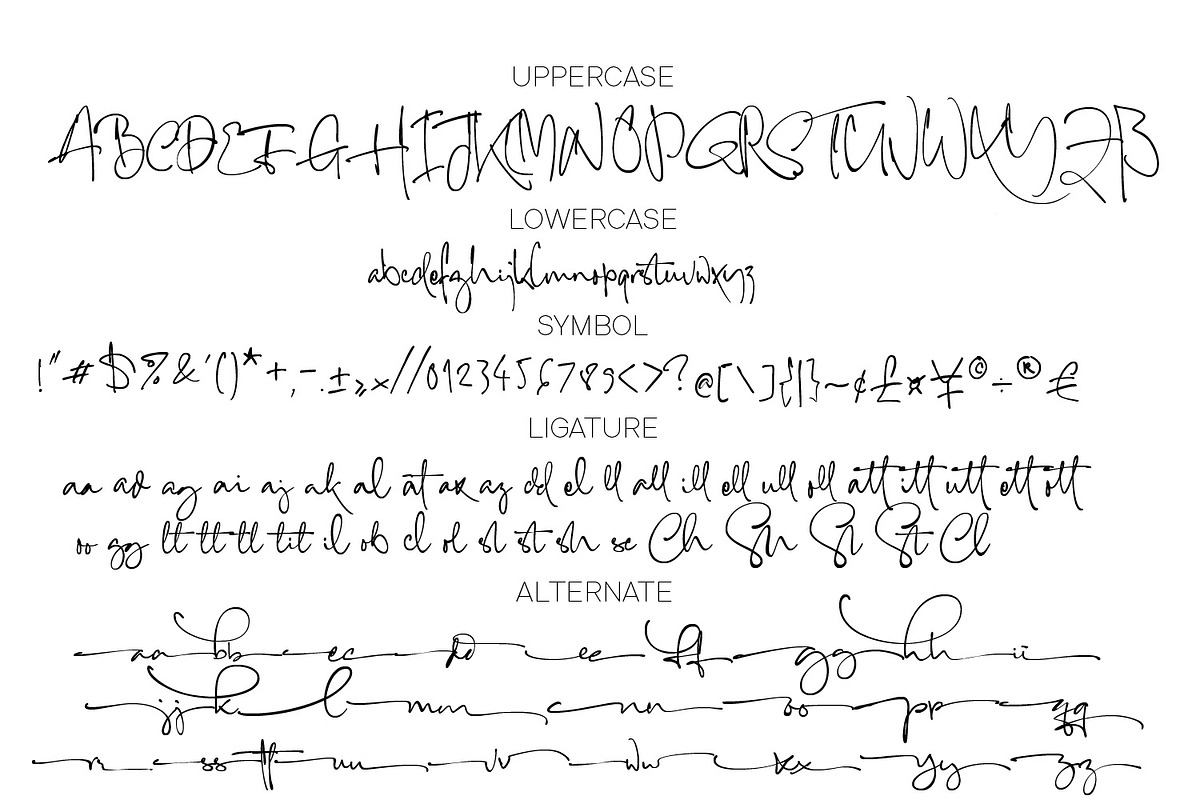 UPPERCASE
ABCDEFGHIJKLMNOPQRSTUVWXYZB
LOWERCASE
abcdefghijklmnopqrstuvwxyz
SYMBOL
!"#$%&'()*+,-.±»×//0123456789<>?@[\]{|}~¢£¤¥©÷®€
LIGATURE
aa ad ag ai aj ak al at ax az dd el ll all ill ell ull oll att itt utt ett ott
oo gg lt tt tl tit il ob cl ol sl st sh se Ch Sh Si St Cl
ALTERNATE
aa bb cc dd ee ff gg hh ii
jj k l mm nn oo pp qq
r ss tt uu vv ww xx yy zz